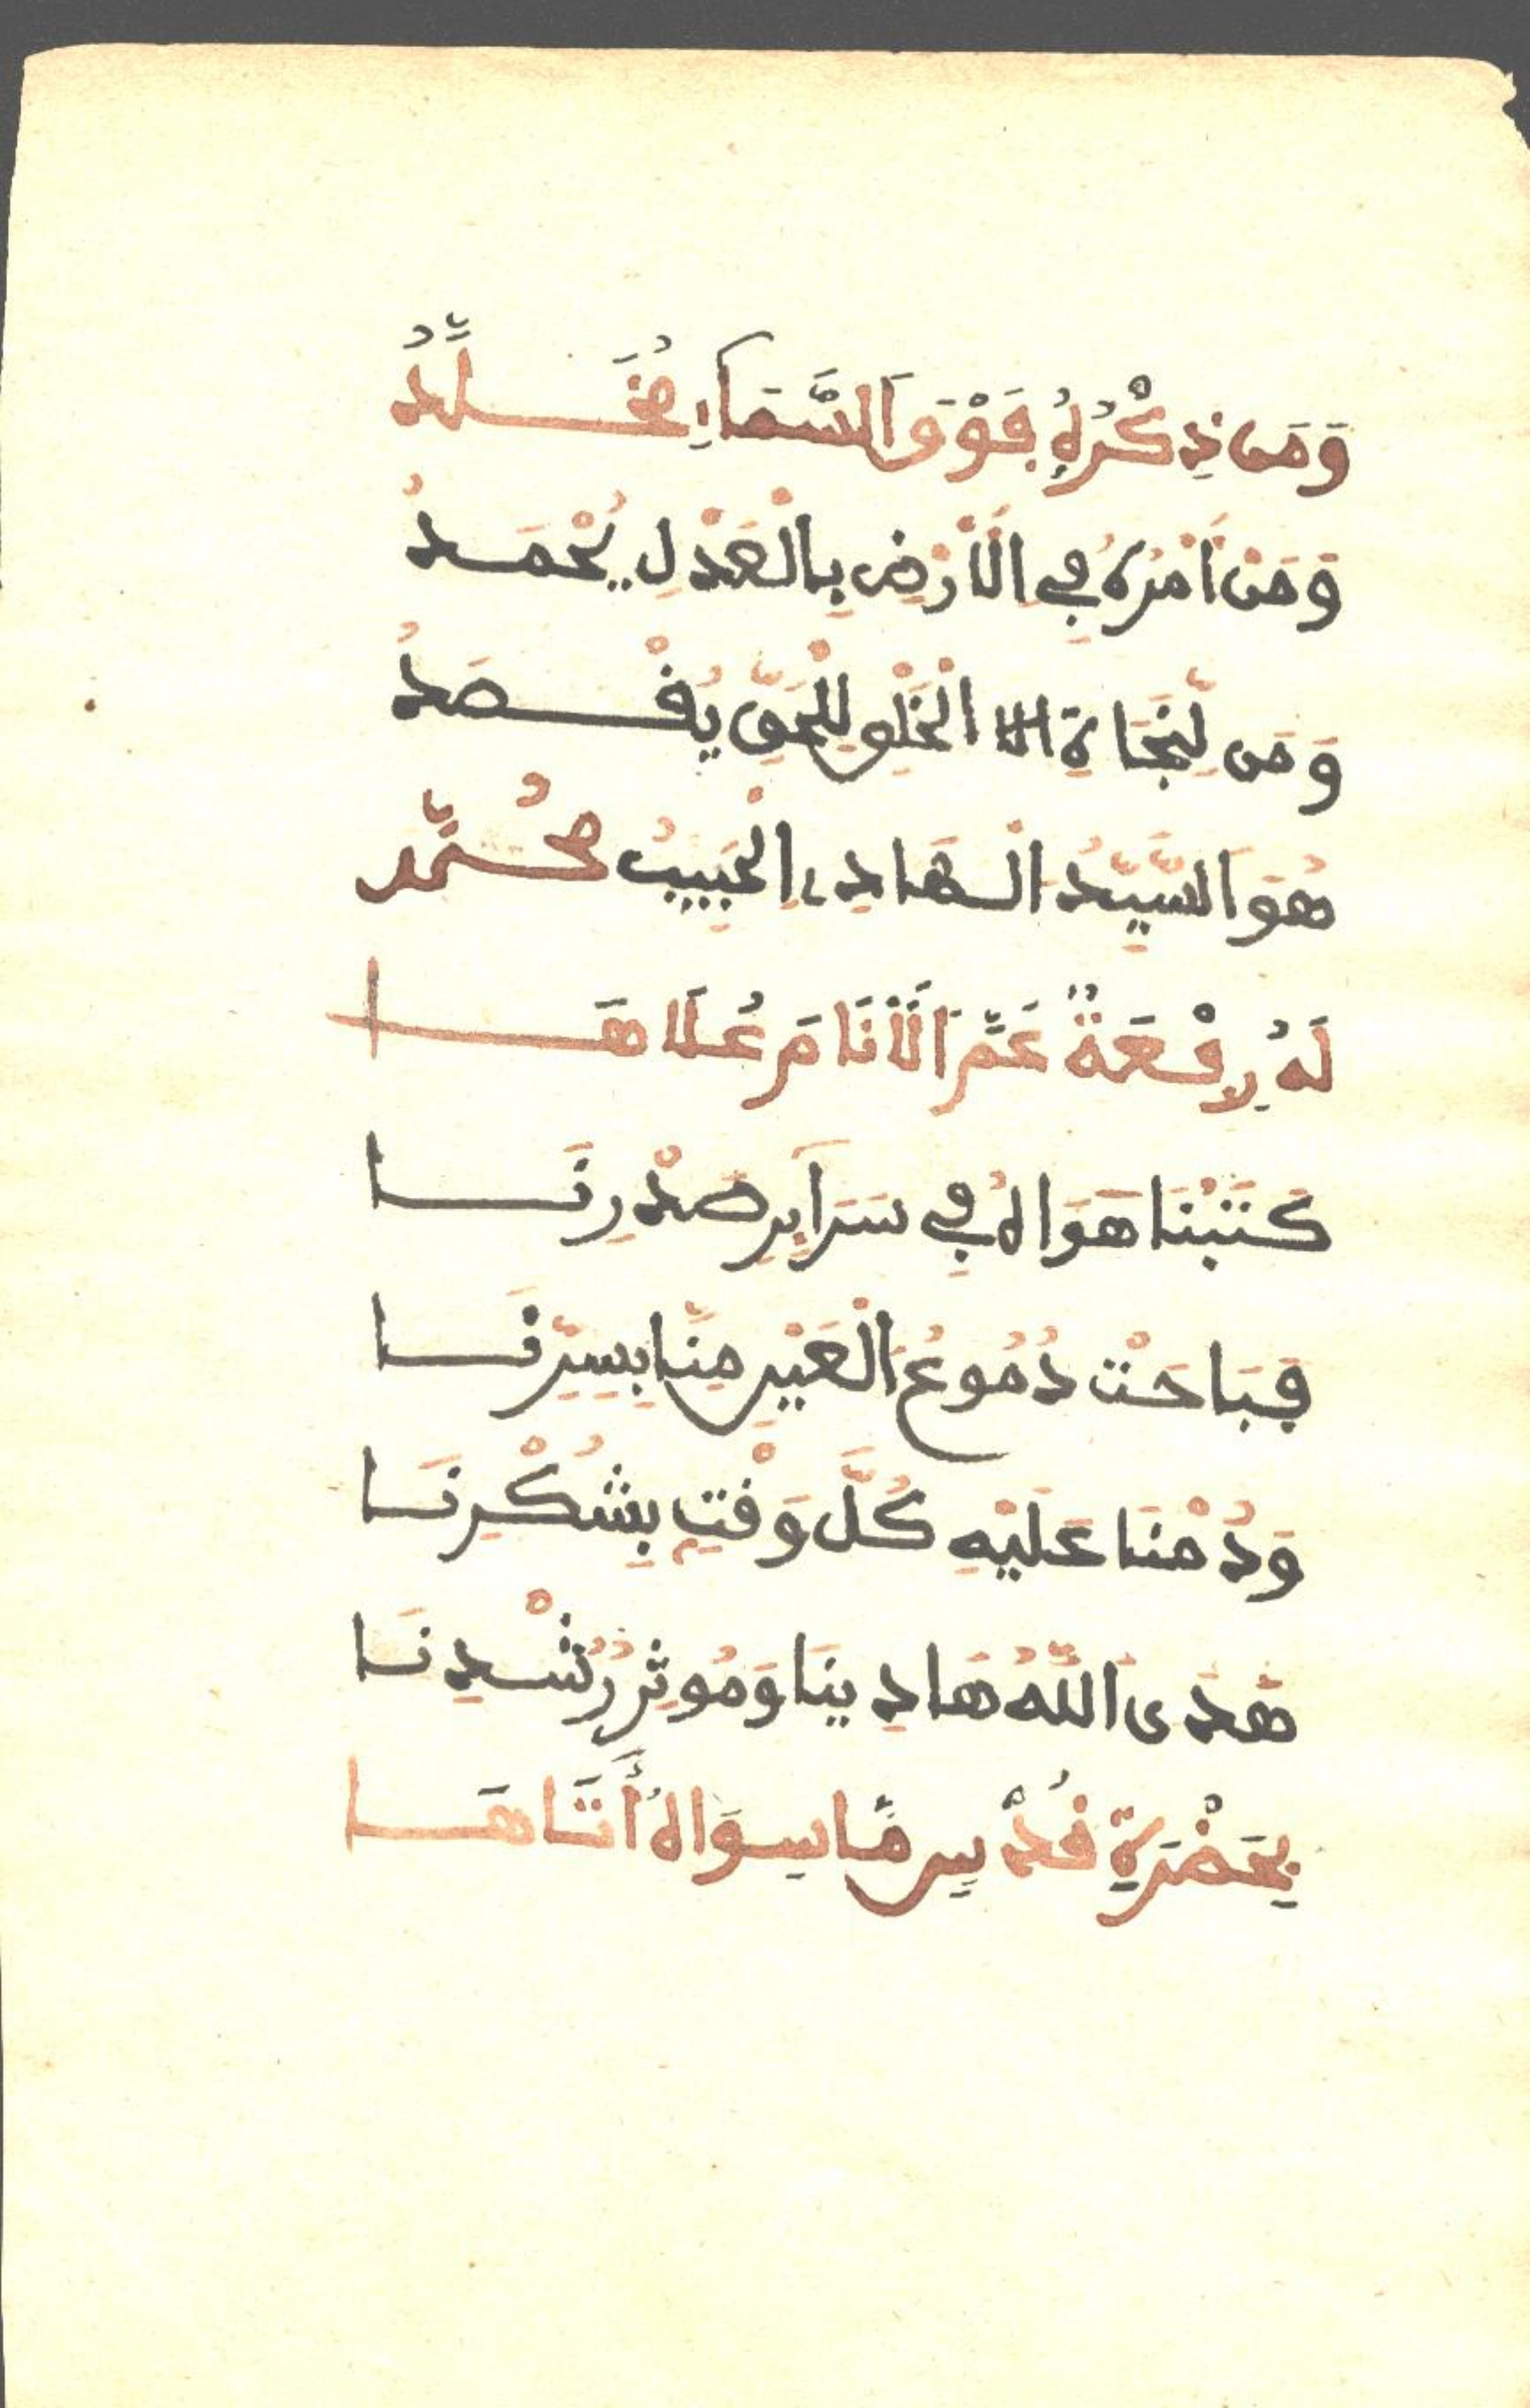 وَمَن ذِكْرُهُ فَوْقَ السَّمَاءِ مُخَلَّدُ
وَمَنْ أَمْرُهُ فِي الْأَرْضِ بِالْعَدْلِ يُحْمَدُ
وَمَن لِّنَجَاةِ الْخَلْقِ لِلْحَقِّ يَقْصَدُ
هُوَ السَّيِّدُ الْهَادِي الْحَبِيبُ مُحُمَّد
لَهُ رِفْعَةٌ عَمَّ الْأَنَامَ عُلَاهَا
كَتَبْنَا هَوَاهُ فِي سَرَايِرِ صَدْرِنَا
فَبَاحَتْ دُمُوعُ الْعَيْنِ مِنَّا بِسِرِّنَا
وَدُمْنَا عَلَيْهِ كُلَّ وَقْتٍ بِشُكْرِنَا
هَدَى اللَّهُ هَادِينَا وَمُوثِرُ رُشْدِنَا
بِحَضْرَةِ قُدْسٍ مَا سِوَاهُ أَتَاهَا